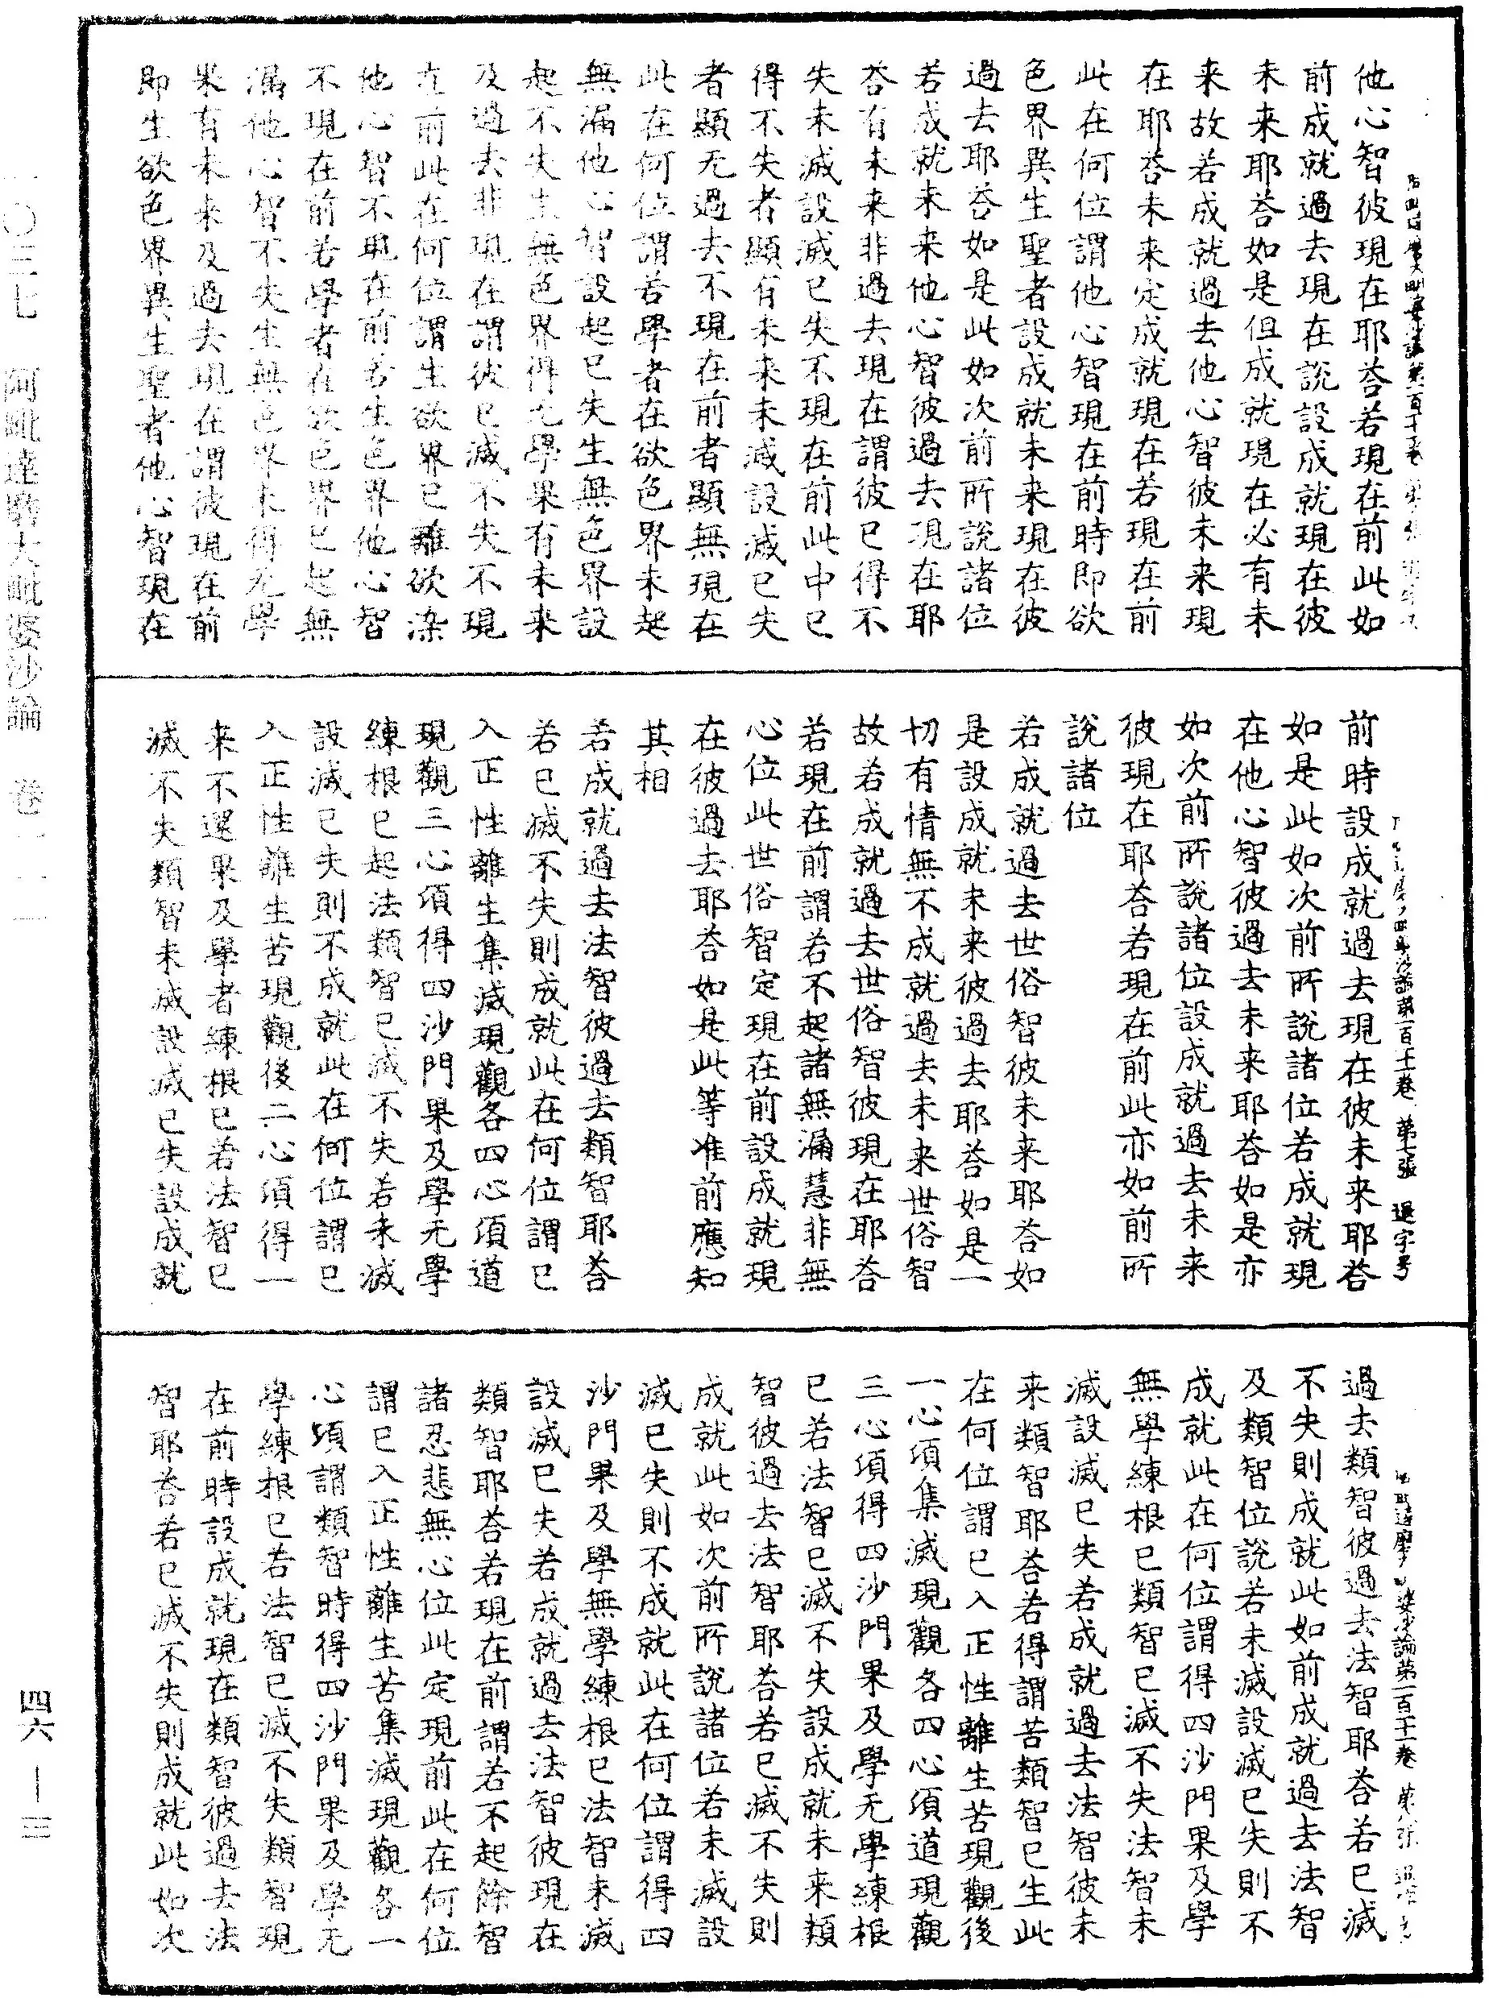 他心智彼現在耶荅若現在前此如
前成就過去現在說設成就現在彼
未来耶荅如是但成就現在必有未
来故若成就過去他心智彼未来現
在耶荅未来定成就現在若現在前
此在何位謂他心智現在前時即欲
色界異生聖者設成就未来現在彼
過去耶荅如是此如次前所說諸位
若成就未来他心智彼過去現在耶
荅有未来非過去現在謂彼已得不
失未滅設滅已失不現在前此中已
得不失者顯有未来未滅設滅已失
者顯无過去不現在前者顯無現在
此在何位謂若學者在欲色界未起
無漏他心智設起已失生無色界設
起不失生無色界得无學果有未来
及過去非現在謂彼已滅不失不現
在前此在何位謂生欲界已離欲染
他心智不現在前若生色界他心智
不現在前若學者在欲色界已起無
漏他心智不失生無色界未得无學
果有未来及過去現在謂彼現在前
即生欲色界異生聖者他心智現在
前時設成就過去現在彼未来耶荅
如是此如次前所說諸位若成就現
在他心智彼過去未来耶荅如是亦
如次前所說諸位設成就過去未来
彼現在耶荅若現在前此亦如前所
說諸位
若成就過去世俗智彼未来耶荅如
是設成就未来彼過去耶荅如是一
切有情無不成就過去未来世俗智
故若成就過去世俗智彼現在耶荅
若現在前謂若不起諸無漏慧非無
心位此世俗智定現在前設成就現
在彼過去耶荅如是此等准前應知
其相
若成就過去法智彼過去類智耶荅
若已滅不失則成就此在何位謂已
入正性離生集滅現觀各四心頃道
現觀三心頃得四沙門果及學无學
練根已起法類智已滅不失若未滅
設滅已失則不成就此在何位謂已
入正性離生苦現觀後二心頃得一
来不還果及學者練根已若法智已
滅不失類智未滅設滅已失設成就
過去類智彼過去法智耶荅若已滅
不失則成就此如前成就過去法智
及類智位說若未滅設滅已失則不
成就此在何位謂得四沙門果及學
無學練根已類智已滅不失法智未
滅設滅已失若成就過去法智彼未
来類智耶荅若得謂苦類智已生此
在何位謂已入正性離生苦現觀後
一心頃集滅現觀各四心頃道現觀
三心頃得四沙門果及學无學練根
已若法智已滅不失設成就未来類
智彼過去法智耶荅若已滅不失則
成就此如次前所說諸位若未滅設
滅已失則不成就此在何位謂得四
沙門果及學無學練根已法智未滅
設滅已失若成就過去法智彼現在
類智耶荅若現在前謂若不起餘智
諸忍悲無心位此定現前此在何位
謂已入正性離生苦集滅現觀各一
心頃謂類智時得四沙門果及學无
學練根已若法智已滅不失類智現
在前時設成就現在類智彼過去法
智耶荅若已滅不失則成就此如次
一〇三七 阿毗達磨大毗婆沙論 卷一一一
四六—一三